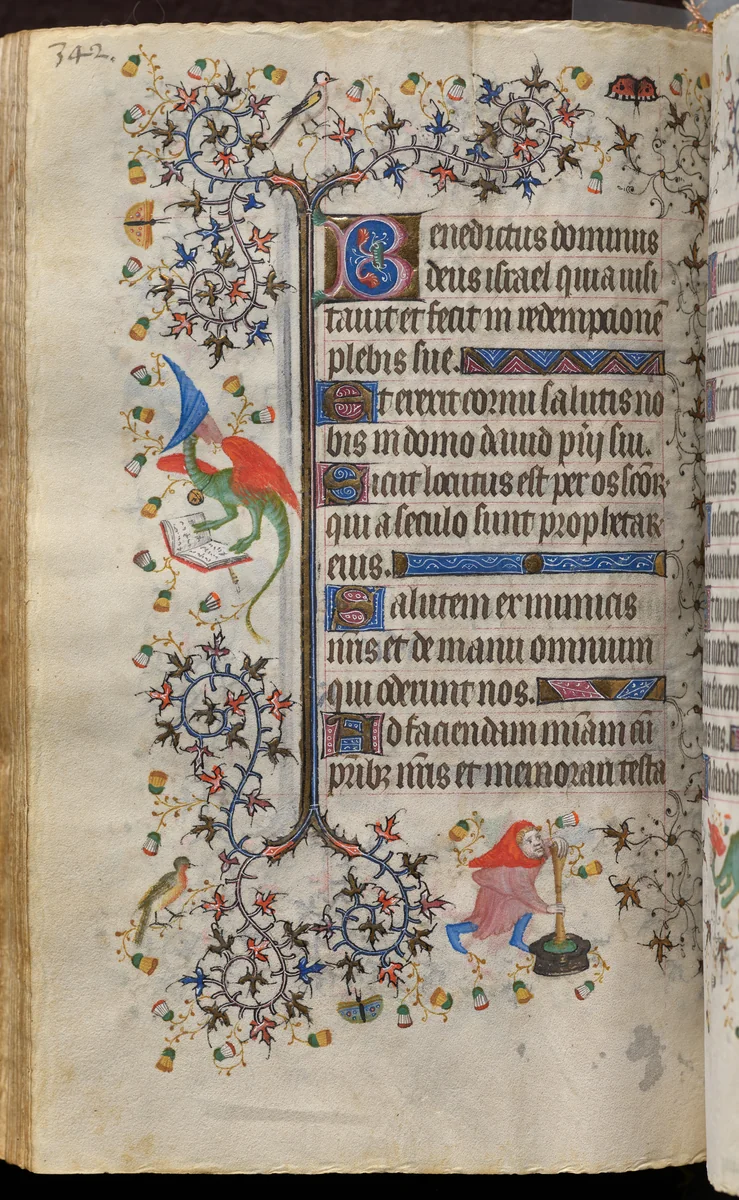 342.
Benedictus dominus
deus israel quia uisi
tauit et fecit in redempcionē
plebis sue.
Et erexit cornu salutis no
bis in domo dauid pūj sui.
Sicut locutus est per os scōꝝ
qui a seculo sunt prophetaꝝ
eius.
Salutem ex inimicis
nr̄is et de manu omnium
qui oderunt nos.
Ad faciendam mīam cū
prībꝫ nr̄is et memorari testa